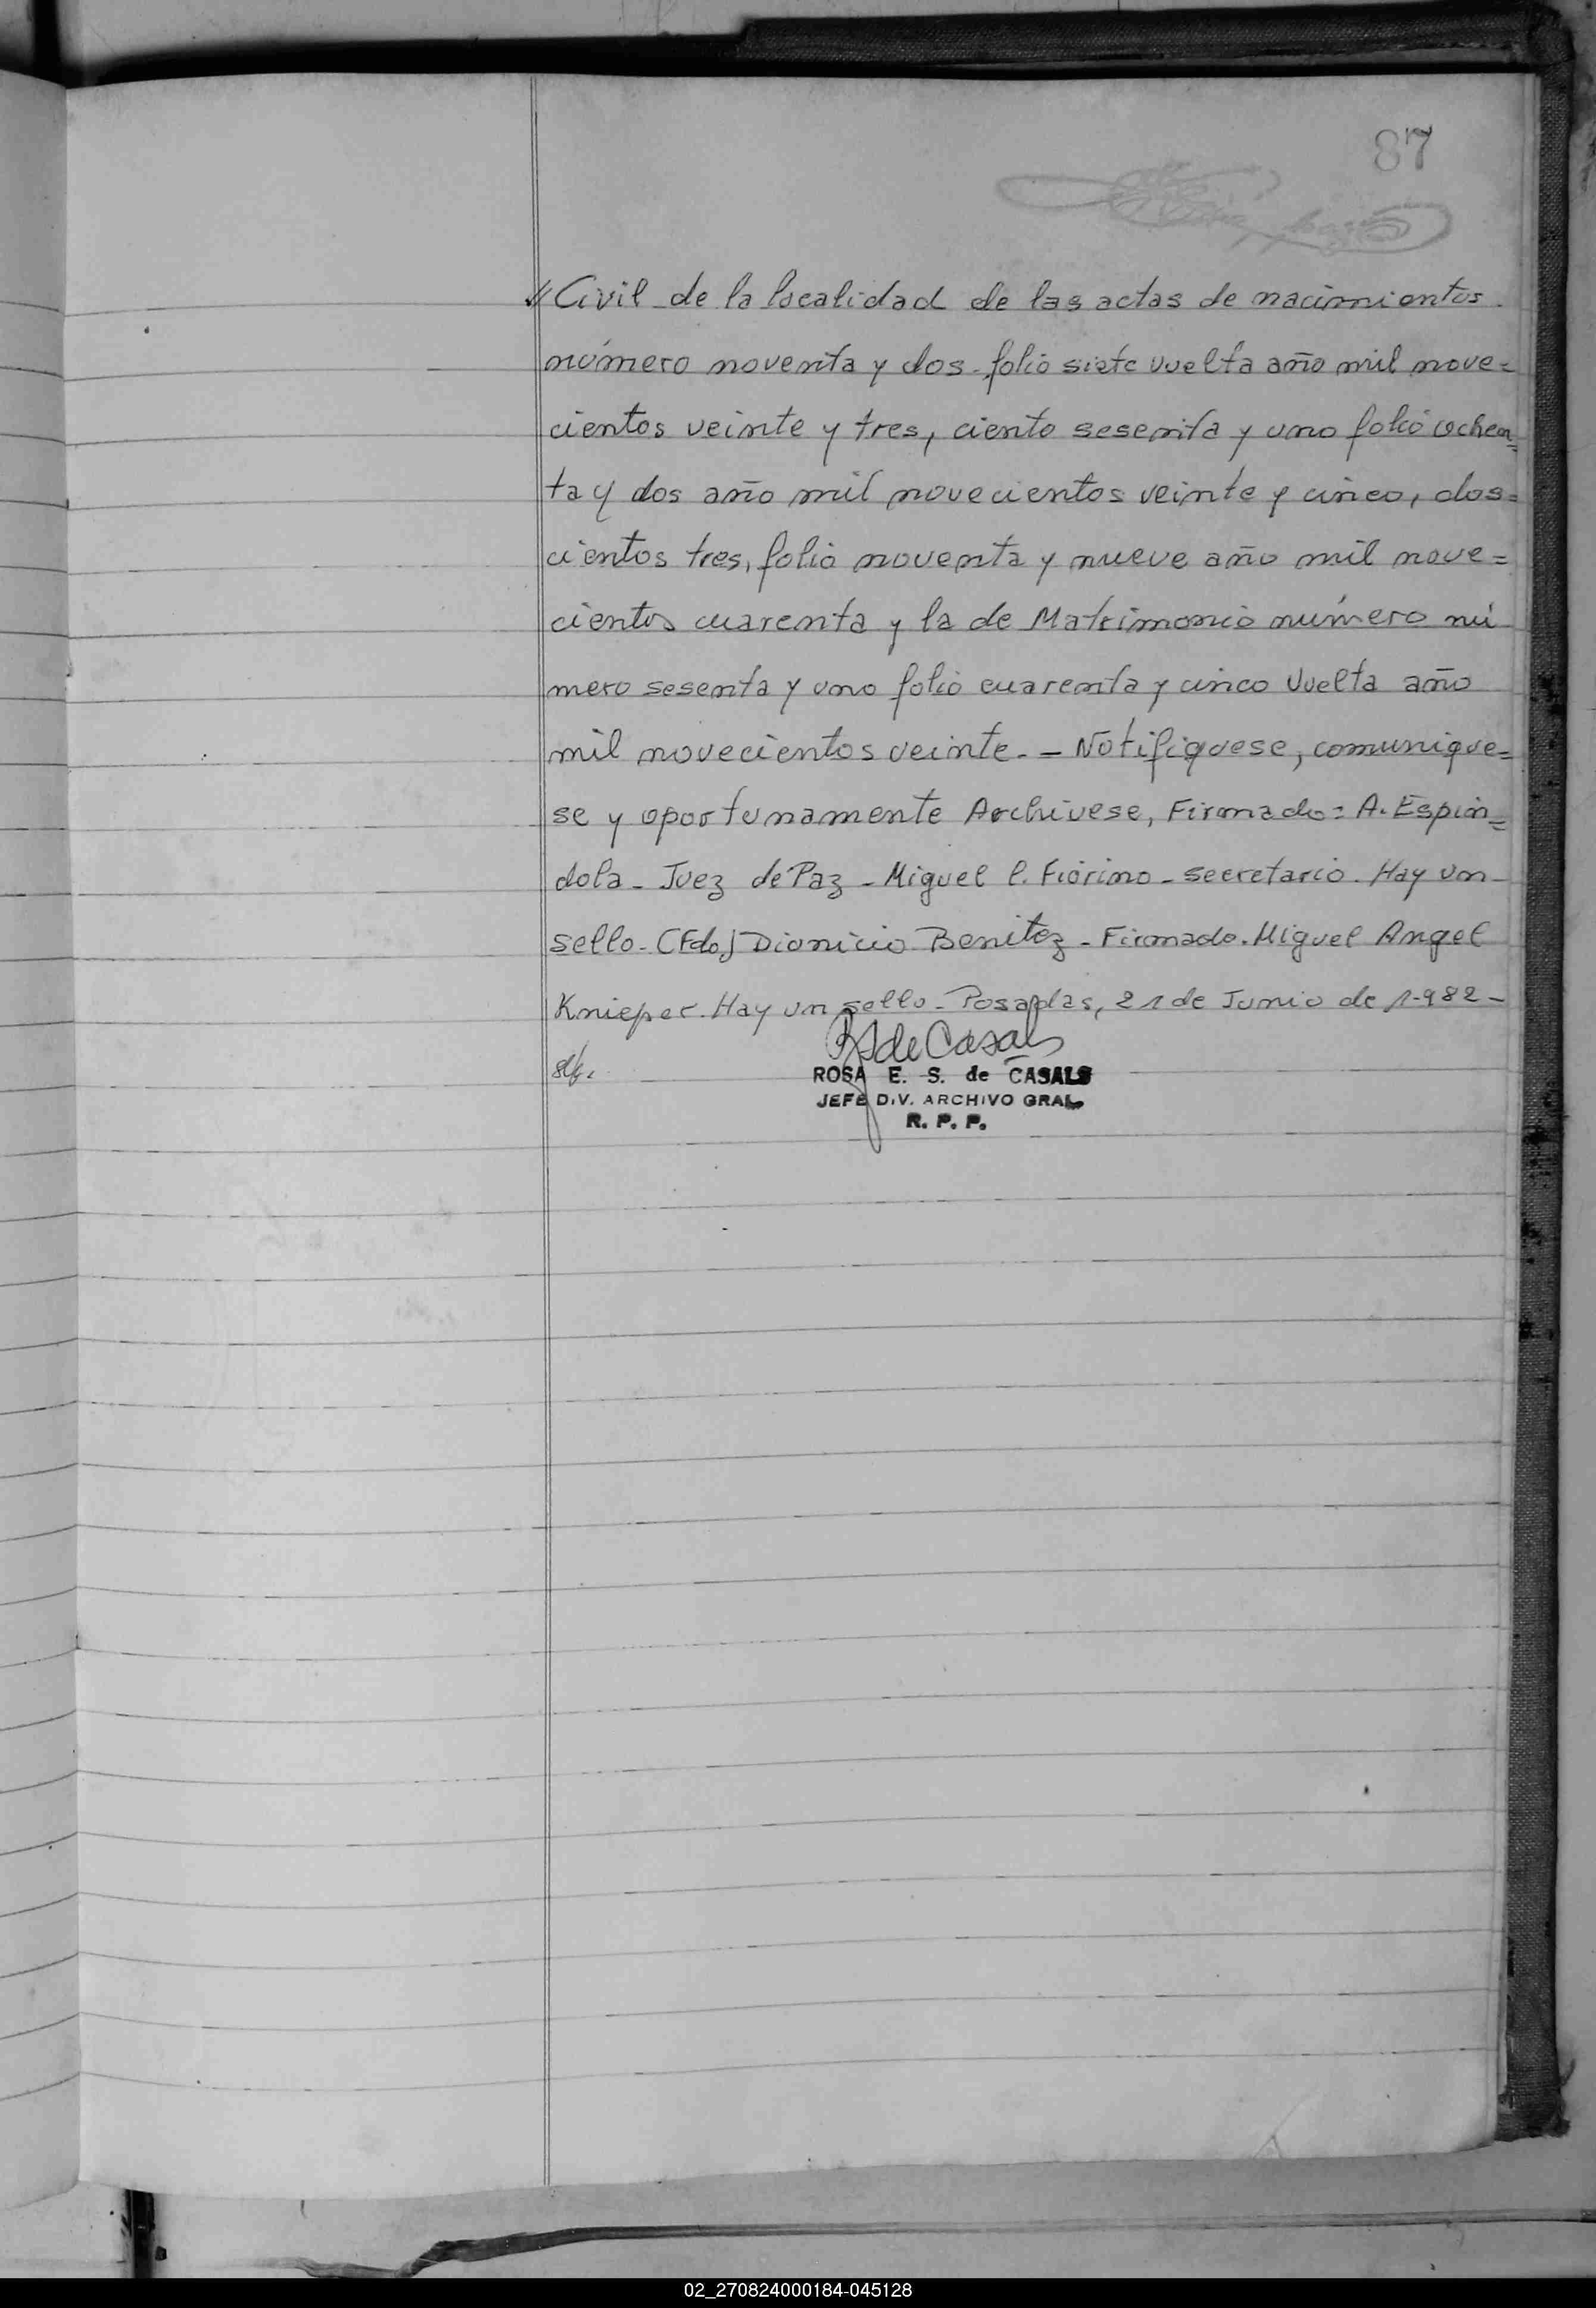 87
// Civil de la localidad de las actas de nacimientos
número noventa y dos - folio siete vuelta año mil nove=
cientos veinte y tres, ciento sesenta y uno folio ochen=
ta y dos año mil novecientos veinte y cinco, dos=
cientos tres, folio noventa y nueve año mil nove=
cientos cuarenta y la de Matrimonio número nú
mero sesenta y uno folio cuarenta y cinco vuelta año
mil novecientos veinte. - Notifiquese, comunique=
se y oportunamente Archivese, Firmado: A. Espin=
dola - Juez de Paz - Miguel C. Fiorino - secretario. Hay un
sello - (Fdo) Dionicio Benitez - Firmado. Miguel Angel
Knieper. Hay un sello - Posadas, 21 de Junio de 1-982 -
RS de Casals
ROSA E. S. de CASALS
JEFE DIV. ARCHIVO GRAL
R. P. P.
02_270824000184-045128